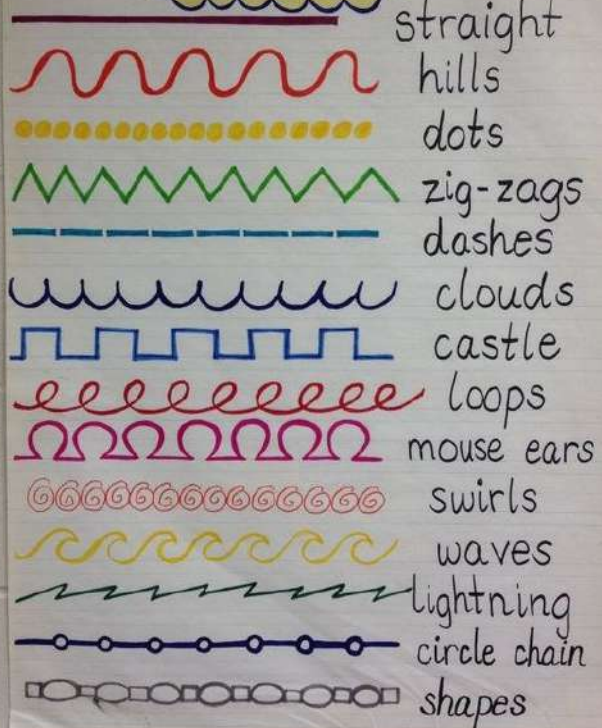 straight
hills
dots
zig-zags
dashes
clouds
castle
loops
mouse ears
swirls
waves
lightning
circle chain
shapes